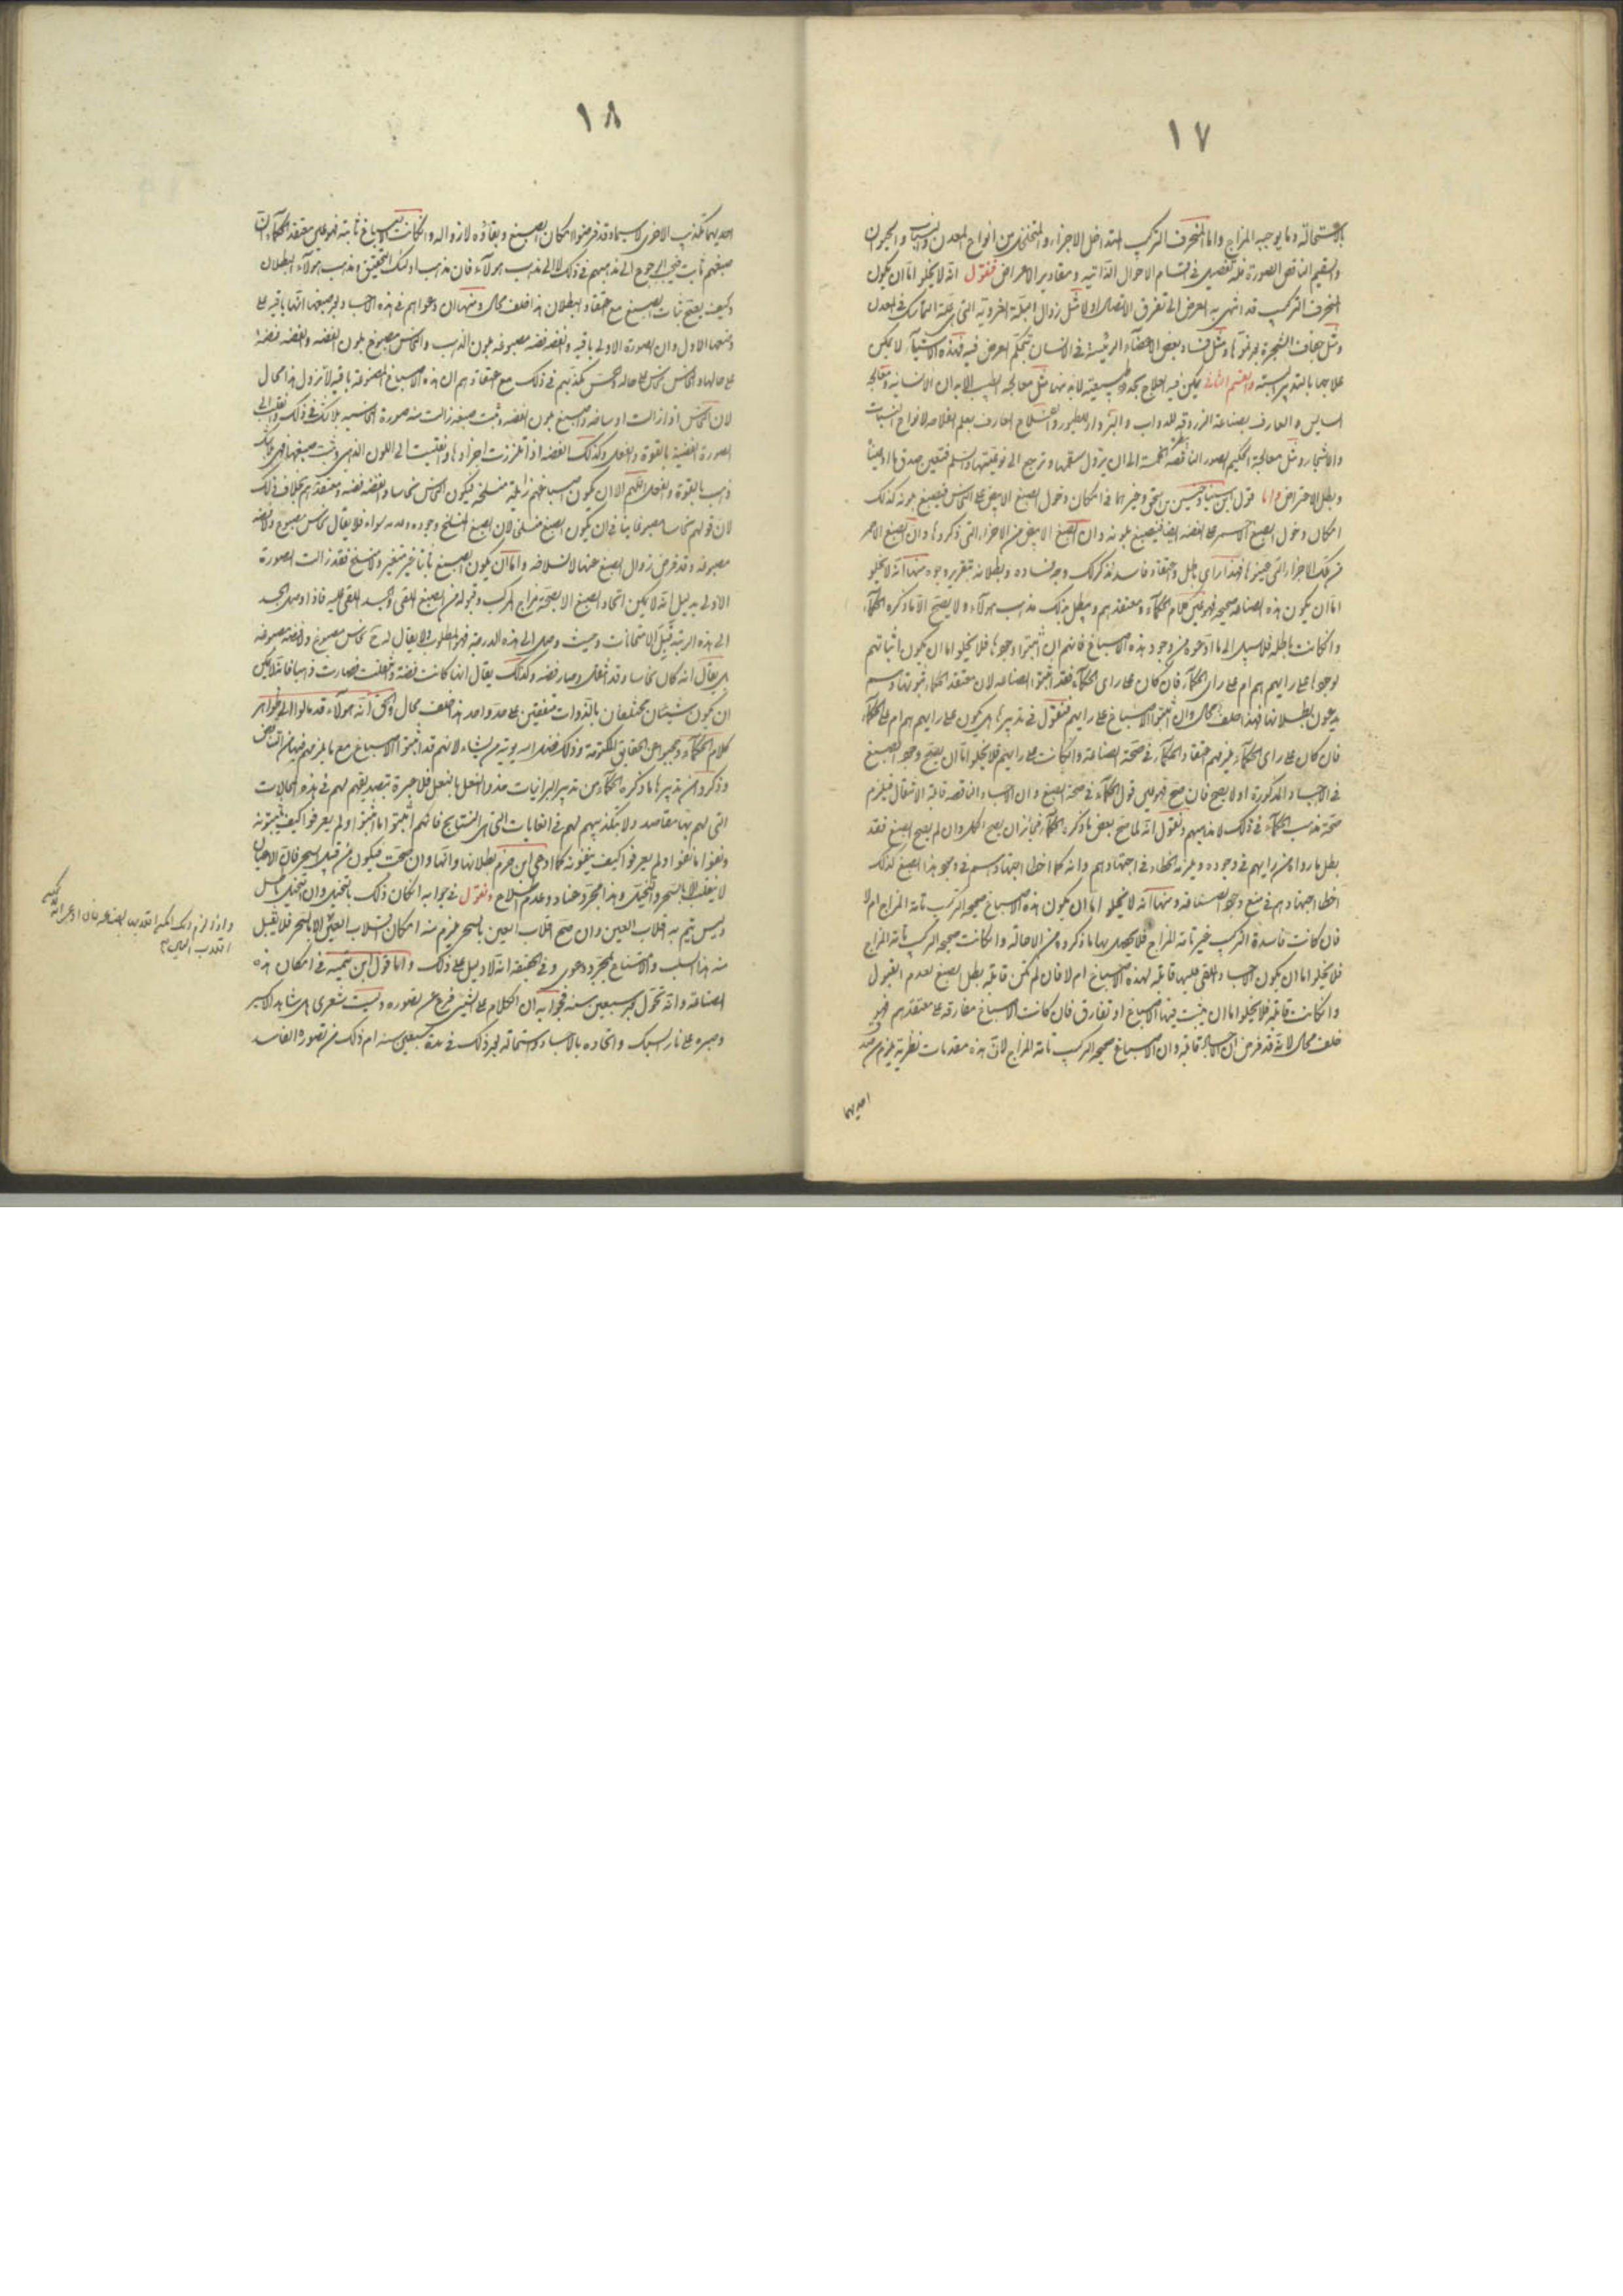 ١٧
بالاستحالة وما يوجبه المزاج واما المنحرف التركيب المتداخل الاجزاء والمتخلخل من انواع المعدن والنبات والحيوان
والسقيم الناقص الصورة فله تفصيل في اقسام الاحوال الذاتية ومقادير الاعراض فنقول انه لا يخلو اما ان يكون
المنحرف التركيب قد انتهى به العرض الى تفرق الاتصال او لا مثل زوال البلة الغروية التى هى علة التماسك في المعدن
ومثل جفاف الشجرة ومثل فساد بعض الاعضاء الرئيسة في الانسان بتحكم العرض فيه فهذه الاشياء لا يمكن
علاجها بالتدبير البتة والقسم الثاني يمكن فيه العلاج لانه منها مثل معالجة الطبيب الابدان الانسانية ومعالجة
السايس والعارف بصناعة الزردقة للدواب والبزدار للطيور والفلاح العارف بعلم الفلاحة لانواع النبات
والاشجار ومثل معالجة الحكيم الصور الناقصة الخمسة الى ان يزول سقمها وترجع الى
وبطل الاعتراض واما قول ابن سينا وحسين بن وغيرهما في امكان دخول الصبغ الابيض على النحاس فيصبغ بلونه كذلك
امكان دخول الصبغ الاحمر على الفضة ايضا فيصبغ بلونه وان الصبغ الابيض من الاجزاء التى ذكروها وان الصبغ الاحمر
من تلك الاجزاء التى فهذا راى باطل واعتقاد فاسد نذكر لك وجه فساده وبطلانه بتقرير وجوه منها انه لا يخلو
اما ان يكون هذه الصناعة صحيحة فهو عين كلام الحكماء ومعتقدهم وبطل بذلك مذهب هولاء ولا يصح الا ما ذكره الحكماء
وان كانت باطلة فلا سبيل الى ما ادعوه من وجود هذه الاصباغ فانهم ان اثبتوا وجودها فلا يخلو اما ان يكون اثباتهم
لوجودها على رايهم هم ام على راى الحكماء فان كان على راى الحكماء فقد اثبتوا الصناعة لان معتقد الحكماء ثبوتها وهم
يدعون بطلانها فهذا خلف محال وان اثبتوا الاصباغ على رايهم فنقول في تدبيرها هل يكون على رايهم هم ام على الحكماء
فان كان على راى الحكماء فيلزمهم اعتقاد الحكماء في صحة الصناعة وان كانت على رايهم فلا يخلو اما ان يصح وجود الصبغ
في الاجساد المذكورة او لا يصح فان صح فهو عين قول الحكماء في صحة الصبغ وان الاجساد الناقصة قابلة الانتقال فيلزم
صحة مذهب الحكماء في ذلك لا مذهبهم ونقول انه لما صح بعض ما ذكره الحكماء فجائز ان يصح الكل وان لم يصح الصبغ فقد
بطل ما رواه من رايهم في وجوده ويلزمه الخطاء في اجتهادهم وانه كما اخطا اجتهادهم في وجود هذا الصبغ كذلك
اخطا اجتهادهم في منع وجود الصناعة ومنها انه لا يخلو اما ان يكون هذه الاصباغ صحيحة التركيب تامة المزاج ام لا
فان كانت فاسدة التركيب غير تامة المزاج فلا يحصل بها ما ذكروه من الاحالة وان كانت صحيحة التركيب تامة المزاج
فلا يخلو اما ان يكون الاجساد الملقى عليها قابلة لهذه الاصباغ ام لا فان لم تكن قابلة بطل الصبغ لعدم القبول
وان كانت قابلة فلا يخلو اما ان يثبت فيها الاصباغ او تفارق فان كانت الاصباغ مفارقة على معتقدهم فهو
خلف محال لانه قد فرض ان الاجساد قابلة وان الاصباغ صحيحة التركيب تامة المزاج لان هذه مقدمات نظرية يلزم من صدق
احديهما
١٨
احديهما تكذيب الاخرى لا سيما وقد فرضوا امكان الصبغ وبقاؤه لا زواله وان كانت الاصباغ ثابتة فهو عين معتقد الحكماء لان
صبغهم ثابت فيجب الرجوع الى مذهبهم في ذلك لا الى مذهب هولاء فان مذهب اولئك التحقيق ومذهب هولاء البطلان
وكيف يصح ثبات الصبغ مع اعتقاد البطلان هذا خلف محال ومنها ان دعواهم في هذه الاجساد بعد صبغها انها باقية على
وضعها الاول وان الصورة الاولى باقية والفضة فضة مصبوغة بلون الذهب والنحاس مصبوغ بلون الفضة والفضة فضة
على حالها والنحاس نحاس على حاله والحس يكذبهم في ذلك مع اعتقادهم ان هذه الاصباغ المصنوعة باقية لا تزول هذا محال
لان النحاس اذا زالت اوساخه وانصبغ بلون الفضة وثبت صبغه زالت منه صورة النحاسية بلا شك في ذلك وانقلب الى
الصورة الفضية بالقوة والفعل وكذلك الفضة اذا تلززت اجزاؤها وانقلبت الى اللون الذهبى وثبت صبغها فهى بلا شك
ذهب بالقوة والفعل اللهم الا ان يكون اصباغهم زايلة منسلخة فيكون النحاس نحاسا والفضة فضة ومعتقدهم بخلاف ذلك
لان قولهم نحاسا مصبوغا اما ان يكون الصبغ منسلخا لان الصبغ المنسلخ وجوده وعدمه سواء فلا يقال نحاس مصبوغ ولا فضة
مصبوغة وقد فرض زوال الصبغ عنها لانسلاخه واما ان يكون الصبغ ثابتا غير متغير ولا منسلخ فقد زالت الصورة
الاولى بدليل انه لا يمكن اتحاد الصبغ الا بصحة مزاج المركب وقبوله من الصبغ الملقى والجسد الملقى عليه فاذا وصل الجسد
الى هذه الرتبة قبل الامتحانات وحيث وصل الى هذه الدرجة فهو المطلوب ولا يقال له ح نحاس مصبوغ ولا فضة مصبوغة
بل يقال انه كان نحاسا وقد انتقل وصار فضة وكذلك يقال انها كانت فضة وانتقلت فصارت ذهبا فاما فلا يمكن
ان يكون شيئان مختلفان بالذوات متفقين على حد واحد هذا خلف محال والحق انه هولاء قد مالوا الى ظواهر
كلام الحكماء الحقايق المكتومة وذلك فضل الله يوتيه من يشاء لانهم قد اثبتوا الاصباغ مع ما يلزمهم فيها من التناقض
وذكروا من تدبيرها ما ذكره الحكماء من تدبير البرانيات حذو النعل بالنعل فلا عبرة بتصديقهم لهم في هذه الحالات
التى لهم بها مقاصد ولا بتكذيبهم لهم في الغايات التى هى النتايج فانهم اثبتوا ما اثبتوا ولم يعرفوا كيف يثبتونه
ونفوا ما نفوا ولم يعرفوا كيف ينفونه كما ادعى ابن حزم بطلانها وانها وان صحت فيكون من قبيل السحر فان الاعيان
لا ينقلب الا بالسحر والتخييل وهذا مجرد عناد وعدم اطلاع ونقول في جوابه ان كان ذلك بالتخييل وان التخييل باطل
وليس يتم به قلاب العين وان صح قلاب العين بالسحر فيلزم منه امكان انسلاب العين الا بالسحر فلا يقبل
منه هذا السلب والامتناع بمجرد دعوى وفي الحقيقة انه لا دليل على ذلك واما قول ابن تيمية في امكان هذه
الصناعة وانه تحول بعد سبعين سنة فجوابه ان الكلام على الشى فرع عن تصوره وليت شعرى هل شاهد الاكسير
وصبره على نار السبك واتحاده بالاجساد واستحالته بعد ذلك في مدة سبعين سنة ام ذلك من تصوره الفاسد